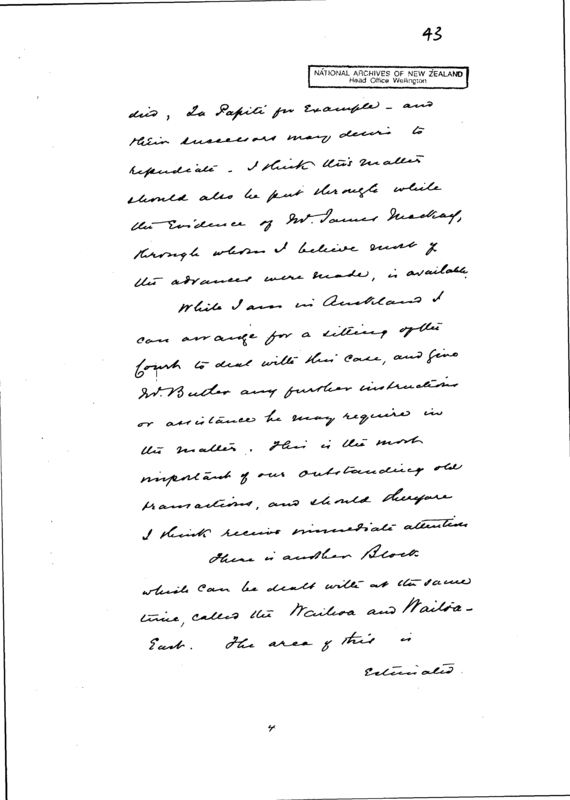 43
NATIONAL ARCHIVES OF NEW ZEALAND
Head Office Wellington
died, Ta Papiti for Example - and
their successors may desire to
repudiate - I think this matter
should also be put through while
the Evidence of Mr. James Mackay,
through whom I believe most of
the advances were made, is available.
While I am in Auckland I
can arrange for a sitting of the
Court to deal with this case, and give
Mr. Butler any further instructions
or assistance he may require in
the matter. This is the most
important of our outstanding old
transactions, and should therefore
I think receive immediate attention
There is another Block
which can be dealt with at the same
time, called the Waihoa and Waihoa-
East. The area of this is
Estimated.
4